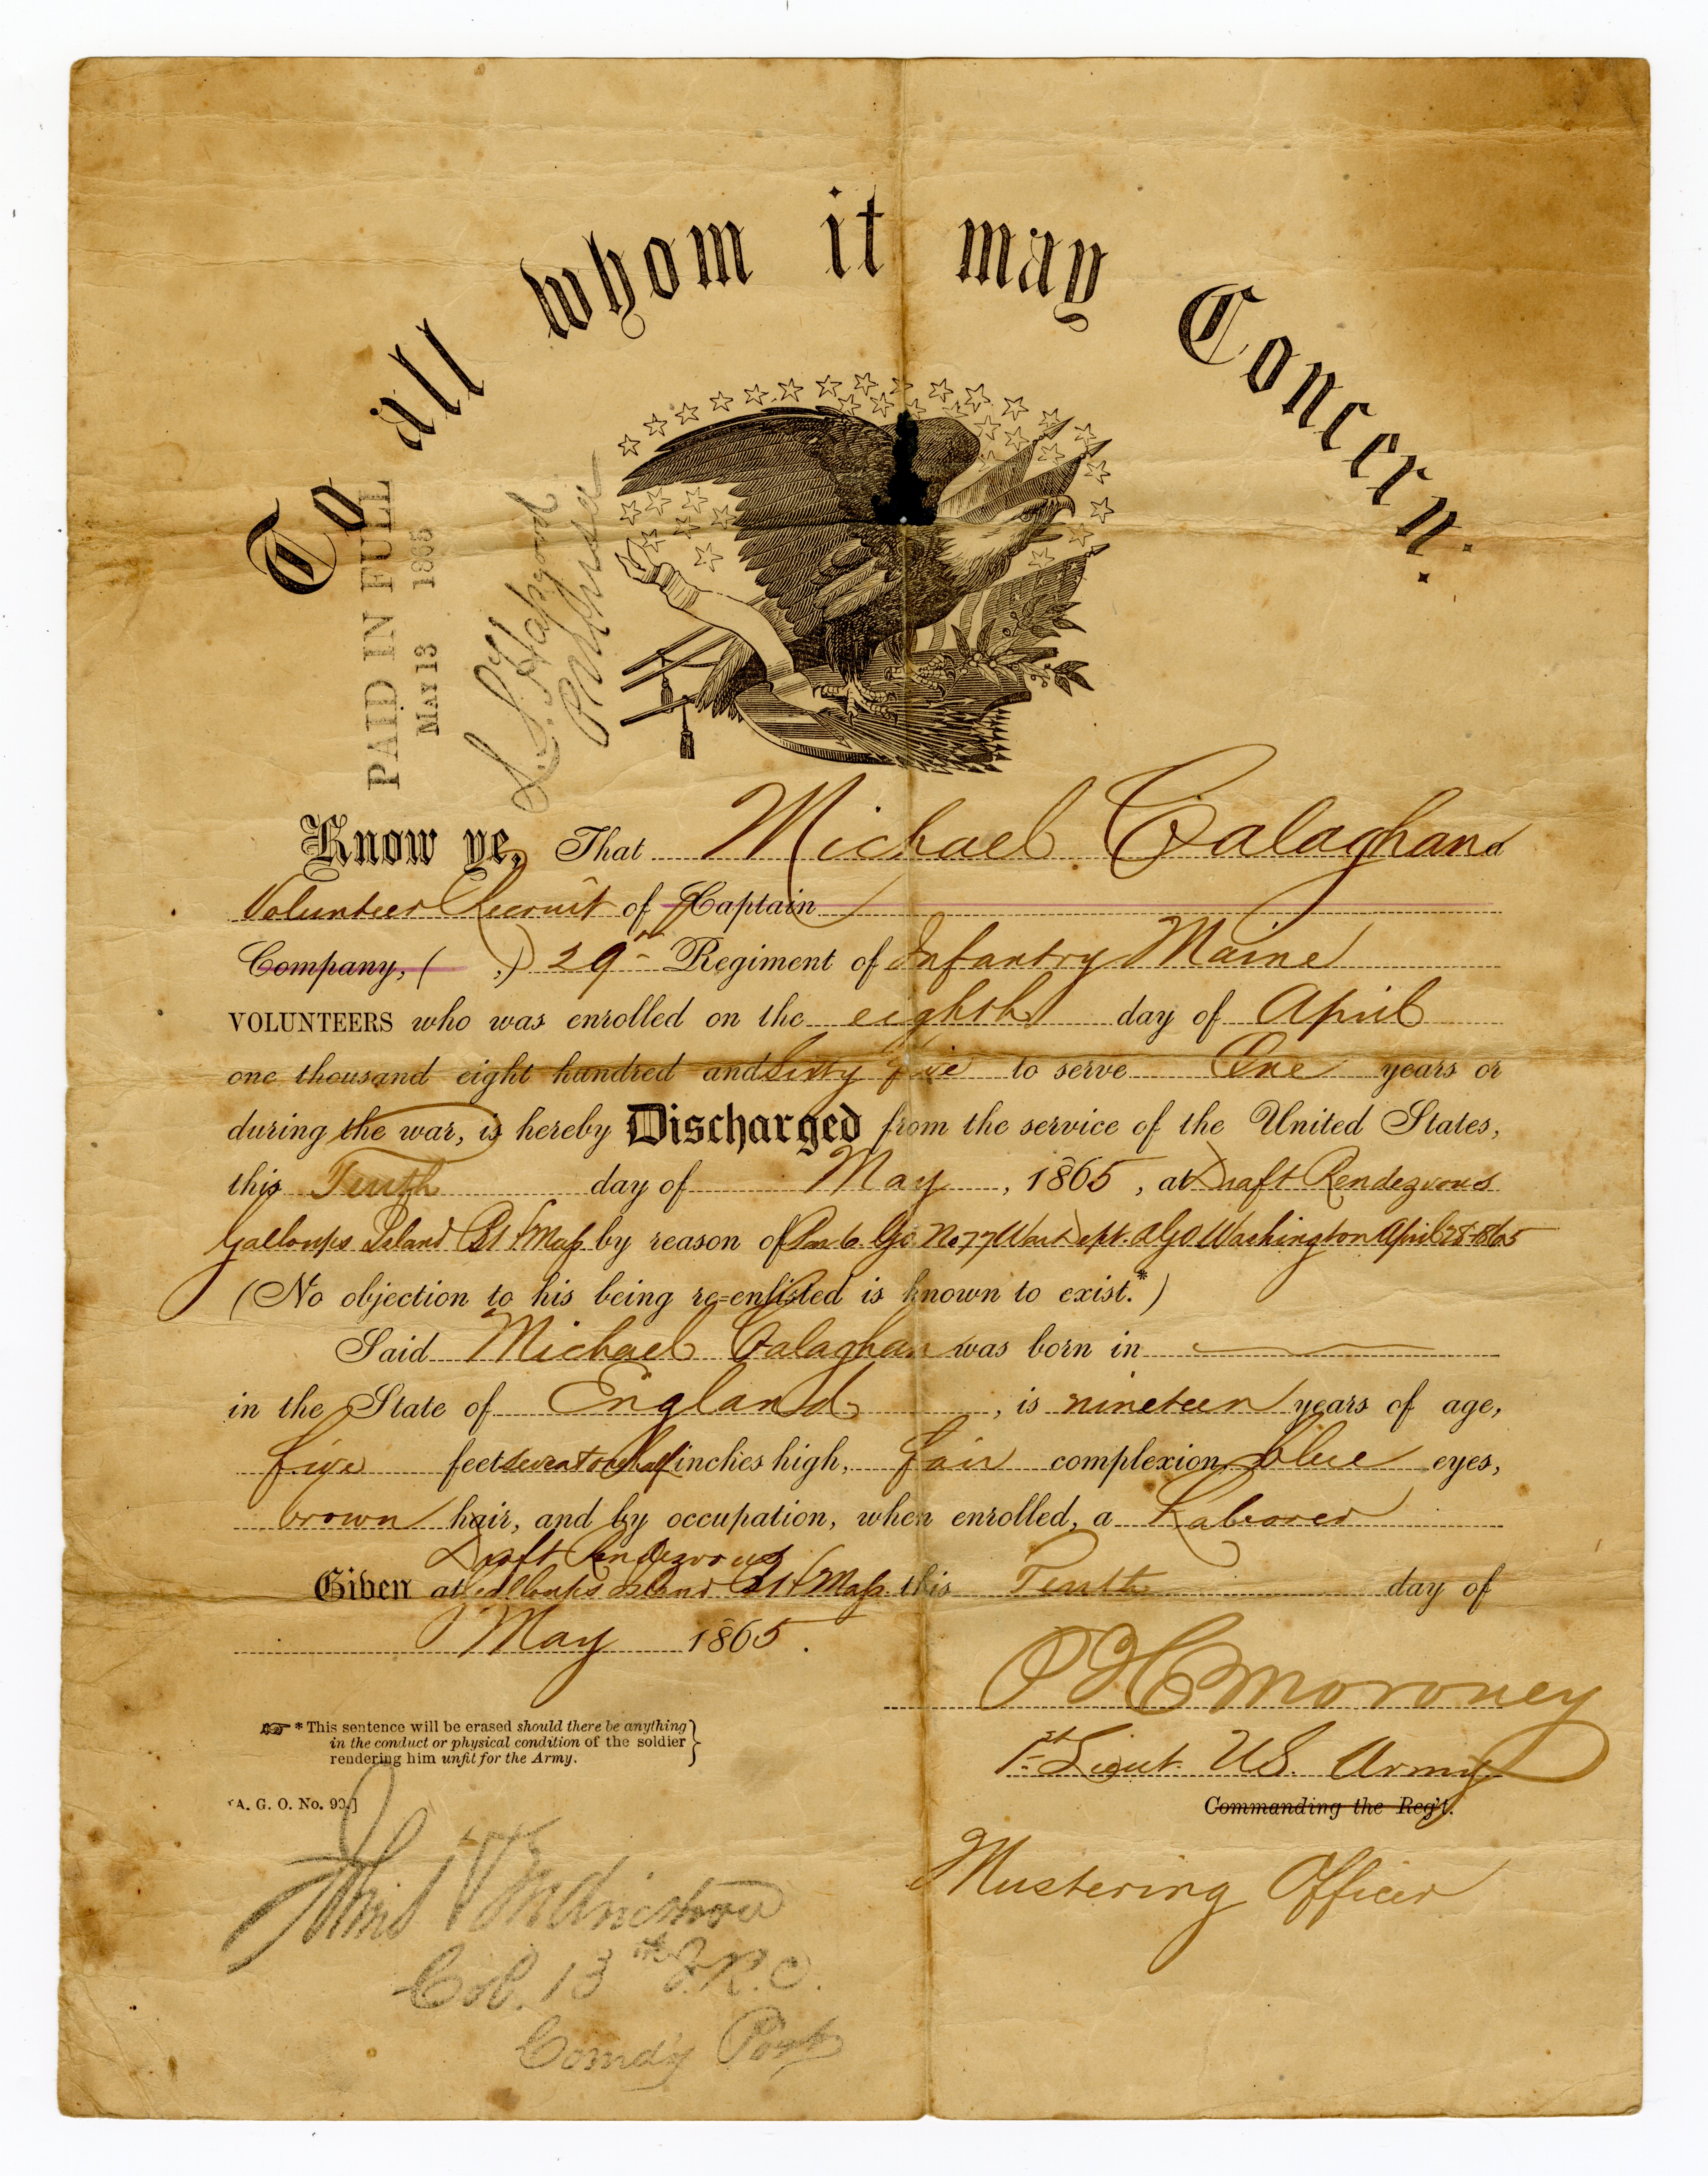 To all whom it may Concern.
PAID IN FULL
MAY 13 1865
By
Know ye, That Michael Calaghan a
Volunteer Recruit of Captain
Company, ( ,) 29th Regiment of Infantry Maine
VOLUNTEERS who was enrolled on the eighth day of April
one thousand eight hundred and Sixty five to serve One years or
during the war, is hereby Discharged from the service of the United States,
this Tenth day of May, 1865, at Draft Rendezvous
Galloups Island B. H. Mass by reason of Par 6 G.O. No 77 War Dept. A.G.O Washington April 28 1865
(No objection to his being re-enlisted is known to exist.*)
Said Michael Calaghan was born in
in the State of England, is nineteen years of age,
five feet seven & one half inches high, fair complexion, blue eyes,
brown hair, and by occupation, when enrolled, a Laborer
Draft Rendezvous
Given at Galloups Island B. H. Mass this Tenth day of
May 1865.
P H Moroney
1st Lieut. U.S. Army
Commanding the Reg't.
Mustering Officer
* This sentence will be erased should there be anything
in the conduct or physical condition of the soldier
rendering him unfit for the Army.
[A. G. O. No. 99.]
Col. 13th V.R.C.
Comdg Post